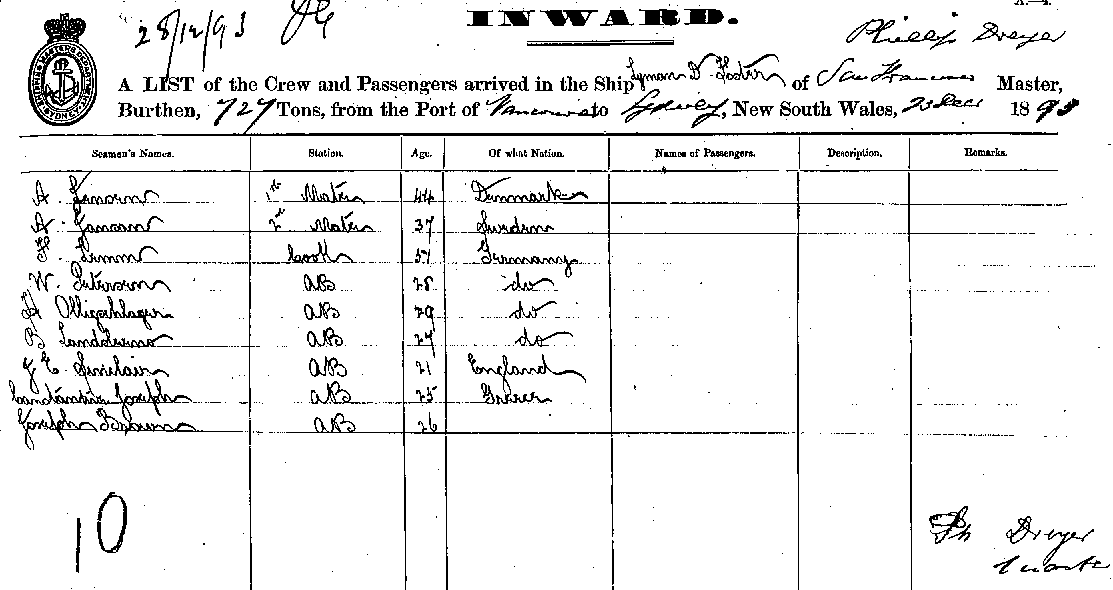 28/12/93
INWARD.
Phillip Dreyer
A LIST of the Crew and Passengers arrived in the Ship Lyman D. Foster of San Francisco Master,
Burthen, 727 Tons, from the Port of Vancouver to Sydney, New South Wales, 23 Dec 1893
Seamen's Names. Station. Age. Of what Nation. Names of Passengers. Description. Remarks.
A. 1st Mate 44 Denmark
A. 2nd Mate 37 Sweden
Cook 51 Germany
W. Peterson AB 28 do
H Olligschlager AB 29 do
B AB 27 do
J E Sinclair AB 21 England
Constantine Joseph AB 25 Greece
Joseph Brown AB 26
10
Ph Dreyer